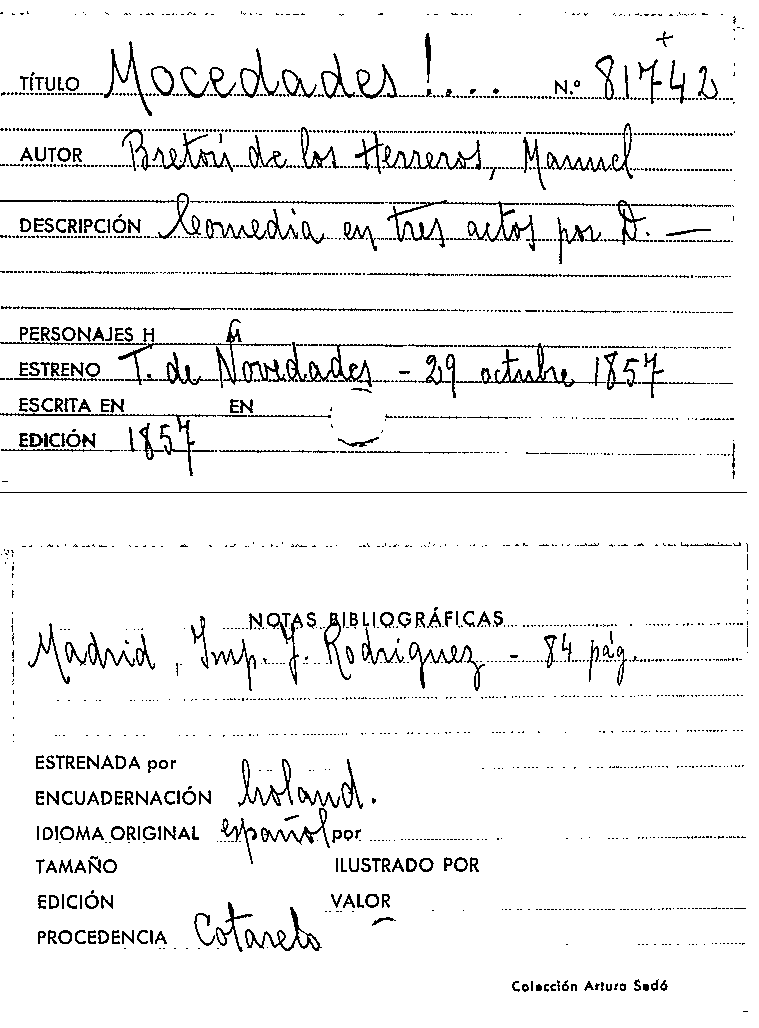 TÍTULO Mocedades !... N.º 81742
AUTOR Bretón de los Herreros, Manuel
DESCRIPCIÓN Comedia en tres actos por D. —
PERSONAJES H M
ESTRENO T. de Novedades - 29 octubre 1857
ESCRITA EN EN
EDICIÓN 1857
NOTAS BIBLIOGRÁFICAS
Madrid, Imp. J. Rodríguez - 84 pág.
ESTRENADA por
ENCUADERNACIÓN holand.
IDIOMA ORIGINAL español por
TAMAÑO ILUSTRADO POR
EDICIÓN VALOR
PROCEDENCIA Cotarelo
Colección Arturo Sedó